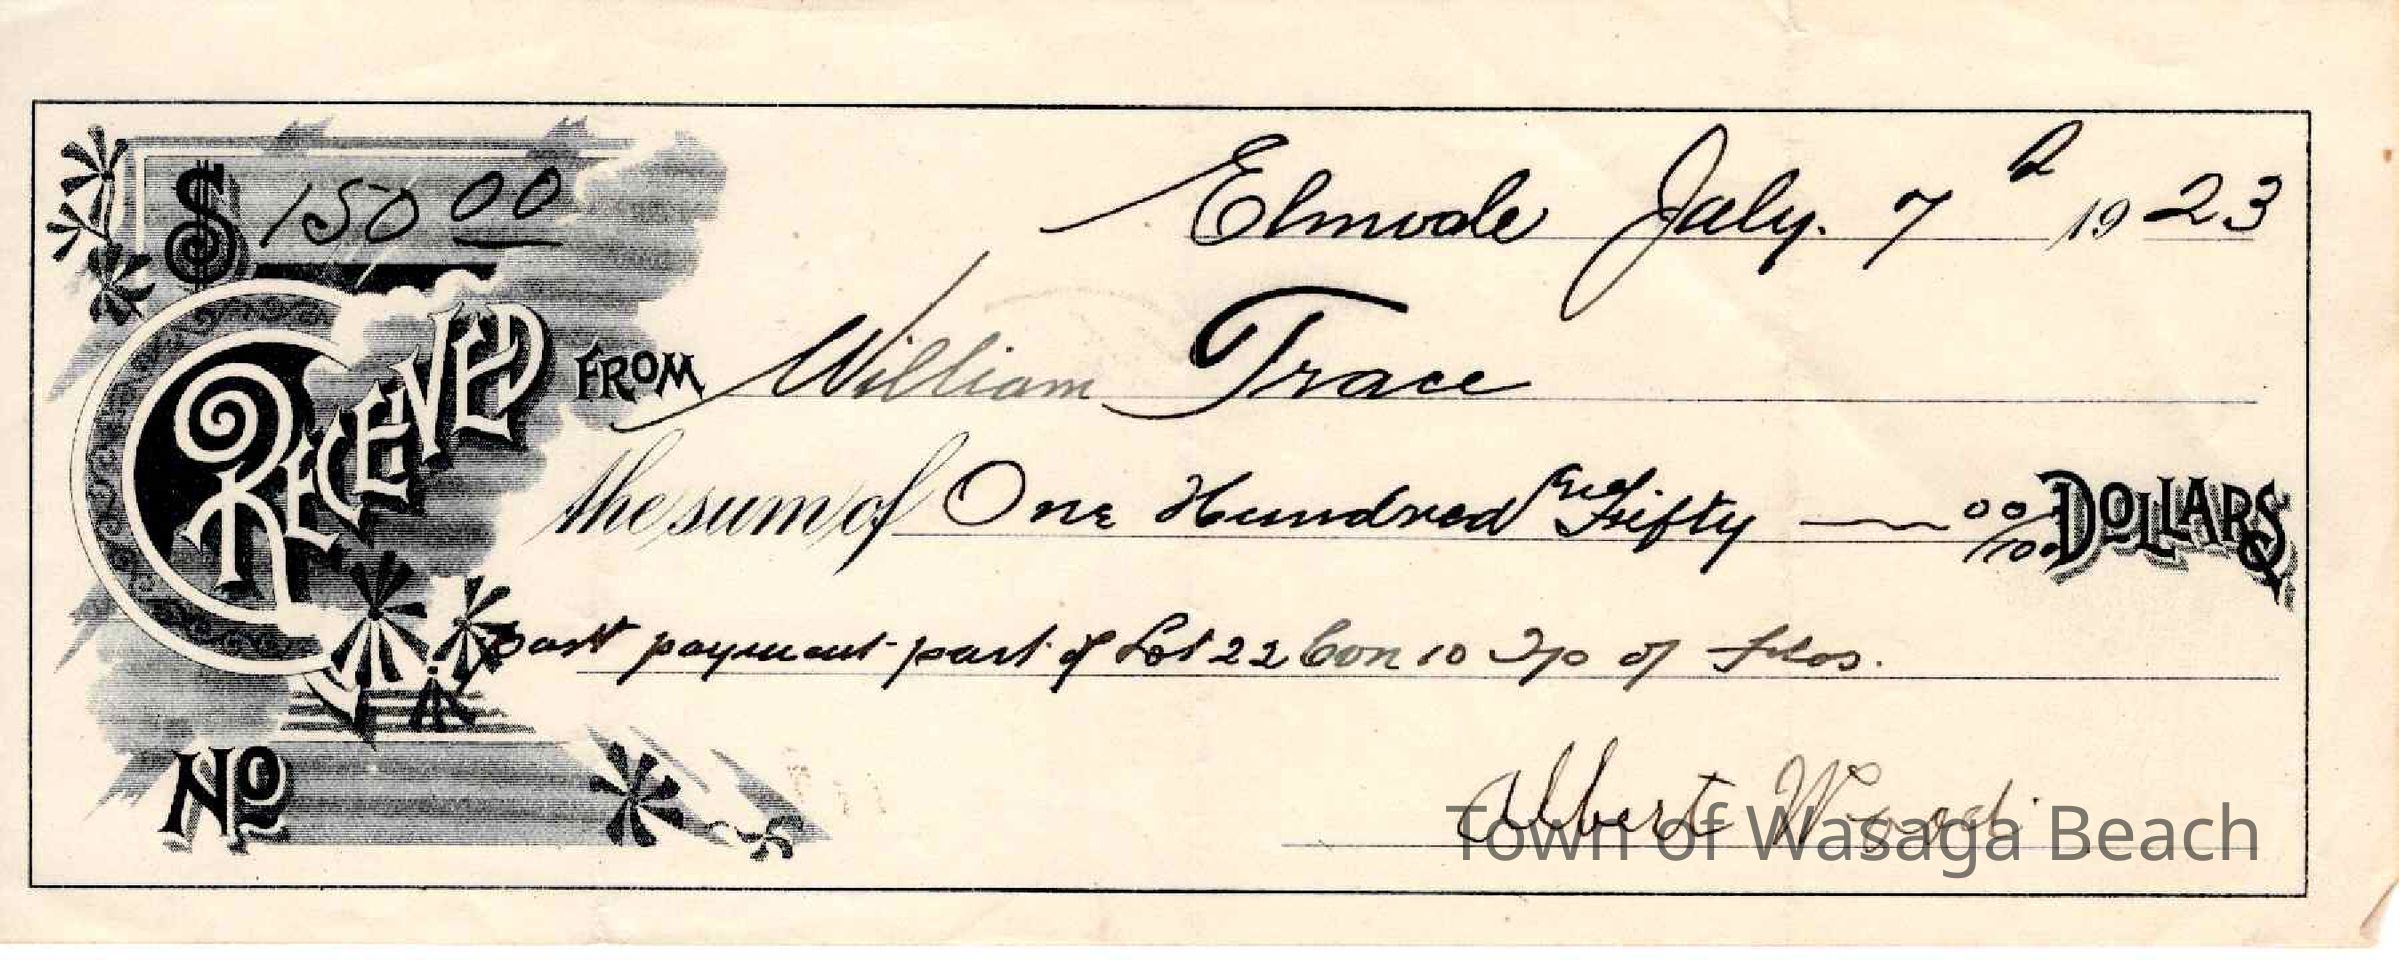 $ 150 00
Elmvale July. 7 th 1923
RECEIVED FROM William Trace
the sum of One Hundred and Fifty 00/100 DOLLARS
part payment part of Lot 22 Con 10 Tp of Flos.
No
Albert Wood
Town of Wasaga Beach